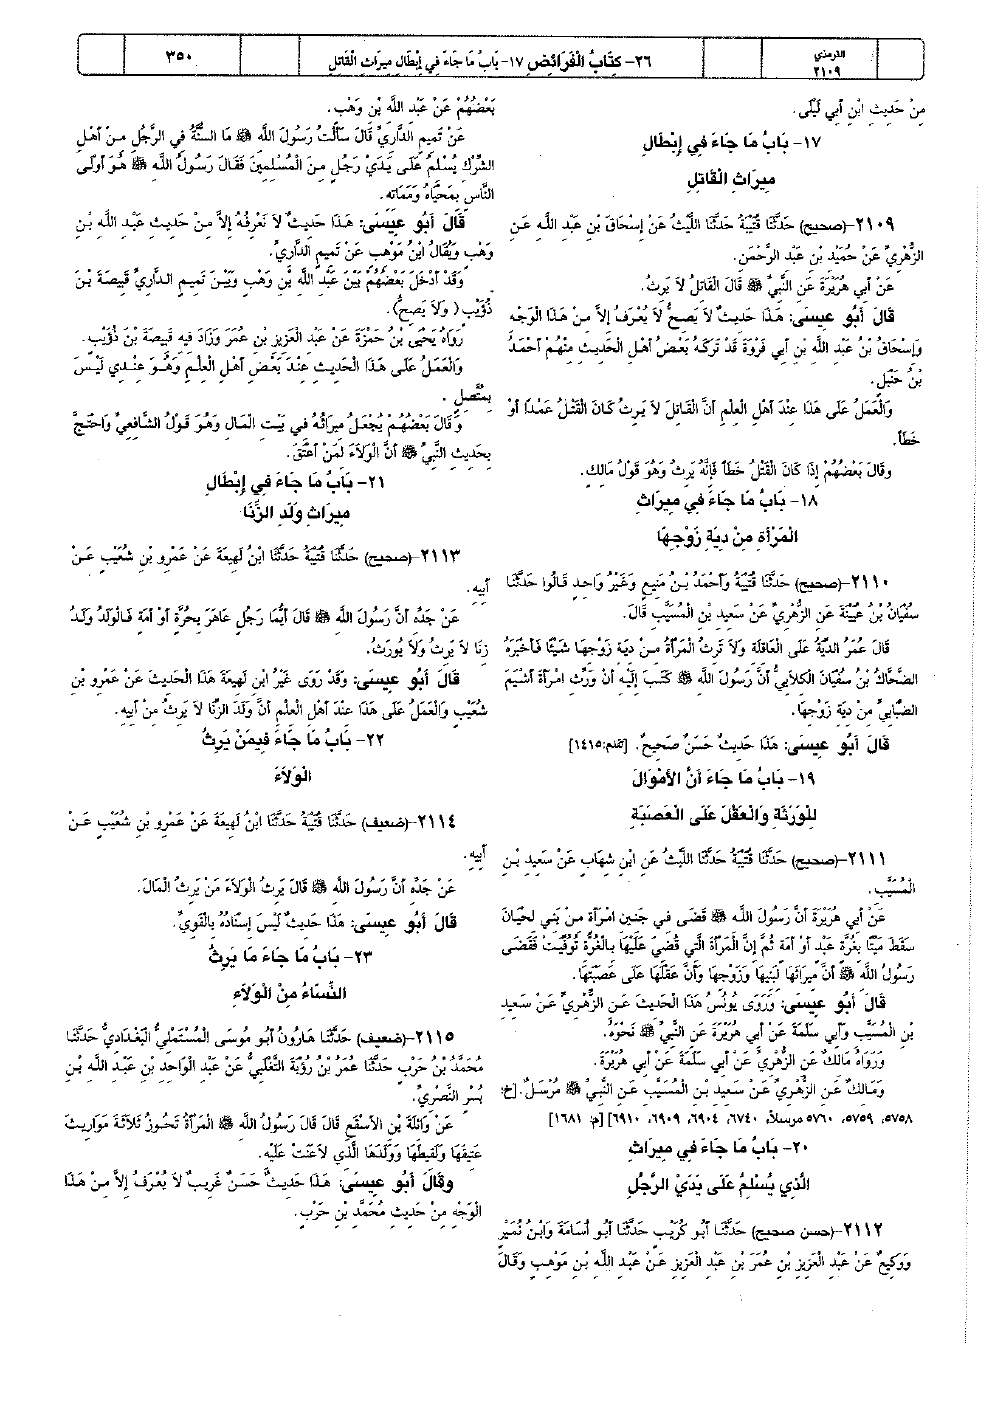 الترمذي
٢١٠٩
٢٦- كِتَابُ الْفَرَائِضِ ١٧- بَابُ مَا جَاءَ فِي إِبْطَالِ مِيرَاثِ الْقَاتِلِ
٣٥٠
مِنْ حَدِيثِ ابْنِ أَبِي لَيْلَى.
١٧- بَابُ مَا جَاءَ فِي إِبْطَالِ
مِيرَاثِ الْقَاتِلِ
٢١٠٩-(صحيح) حَدَّثَنَا قُتَيْبَةُ حَدَّثَنَا اللَّيْثُ عَنْ إِسْحَاقَ بْنِ عَبْدِ اللَّهِ عَنِ
الزُّهْرِيِّ عَنْ حُمَيْدِ بْنِ عَبْدِ الرَّحْمَنِ.
عَنْ أَبِي هُرَيْرَةَ عَنِ النَّبِيِّ ﷺ قَالَ الْقَاتِلُ لاَ يَرِثُ.
قَالَ أَبُو عِيسَى: هَذَا حَدِيثٌ لاَ يَصِحُّ لاَ يُعْرَفُ إِلاَّ مِنْ هَذَا الْوَجْهِ
وَإِسْحَاقُ بْنُ عَبْدِ اللَّهِ بْنِ أَبِي فَرْوَةَ قَدْ تَرَكَهُ بَعْضُ أَهْلِ الْحَدِيثِ مِنْهُمْ أَحْمَدُ
بْنُ حَنْبَلٍ.
وَالْعَمَلُ عَلَى هَذَا عِنْدَ أَهْلِ الْعِلْمِ أَنَّ الْقَاتِلَ لاَ يَرِثُ كَانَ الْقَتْلُ عَمْدًا أَوْ
خَطَأً.
وَقَالَ بَعْضُهُمْ إِذَا كَانَ الْقَتْلُ خَطَأً فَإِنَّهُ يَرِثُ وَهُوَ قَوْلُ مَالِكٍ.
١٨- بَابُ مَا جَاءَ فِي مِيرَاثِ
الْمَرْأَةِ مِنْ دِيَةِ زَوْجِهَا
٢١١٠-(صحيح) حَدَّثَنَا قُتَيْبَةُ وَأَحْمَدُ بْنُ مَنِيعٍ وَغَيْرُ وَاحِدٍ قَالُوا حَدَّثَنَا
سُفْيَانُ بْنُ عُيَيْنَةَ عَنِ الزُّهْرِيِّ عَنْ سَعِيدِ بْنِ الْمُسَيَّبِ قَالَ.
قَالَ عُمَرُ الدِّيَةُ عَلَى الْعَاقِلَةِ وَلاَ تَرِثُ الْمَرْأَةُ مِنْ دِيَةِ زَوْجِهَا شَيْئًا فَأَخْبَرَهُ
الضَّحَّاكُ بْنُ سُفْيَانَ الْكِلاَبِيُّ أَنَّ رَسُولَ اللَّهِ ﷺ كَتَبَ إِلَيْهِ أَنْ وَرِّثِ امْرَأَةَ أَشْيَمَ
الضِّبَابِيِّ مِنْ دِيَةِ زَوْجِهَا.
قَالَ أَبُو عِيسَى: هَذَا حَدِيثٌ حَسَنٌ صَحِيحٌ. [تقدم:١٤١٥]
١٩- بَابُ مَا جَاءَ أَنَّ الأَمْوَالَ
لِلْوَرَثَةِ وَالْعَقْلَ عَلَى الْعَصَبَةِ
٢١١١-(صحيح) حَدَّثَنَا قُتَيْبَةُ حَدَّثَنَا اللَّيْثُ عَنِ ابْنِ شِهَابٍ عَنْ سَعِيدِ بْنِ
الْمُسَيَّبِ.
عَنْ أَبِي هُرَيْرَةَ أَنَّ رَسُولَ اللَّهِ ﷺ قَضَى فِي جَنِينِ امْرَأَةٍ مِنْ بَنِي لِحْيَانَ
سَقَطَ مَيِّتًا بِغُرَّةٍ عَبْدٍ أَوْ أَمَةٍ ثُمَّ إِنَّ الْمَرْأَةَ الَّتِي قُضِيَ عَلَيْهَا بِالْغُرَّةِ تُوُفِّيَتْ فَقَضَى
رَسُولُ اللَّهِ ﷺ أَنَّ مِيرَاثَهَا لِبَنِيهَا وَزَوْجِهَا وَأَنَّ عَقْلَهَا عَلَى عَصَبَتِهَا.
قَالَ أَبُو عِيسَى: وَرَوَى يُونُسُ هَذَا الْحَدِيثَ عَنِ الزُّهْرِيِّ عَنْ سَعِيدِ
بْنِ الْمُسَيَّبِ وَأَبِي سَلَمَةَ عَنْ أَبِي هُرَيْرَةَ عَنِ النَّبِيِّ ﷺ نَحْوَهُ.
وَرَوَاهُ مَالِكٌ عَنِ الزُّهْرِيِّ عَنْ أَبِي سَلَمَةَ عَنْ أَبِي هُرَيْرَةَ.
وَمَالِكٌ عَنِ الزُّهْرِيِّ عَنْ سَعِيدِ بْنِ الْمُسَيَّبِ عَنِ النَّبِيِّ ﷺ مُرْسَلٌ. [خ:
٥٧٥٨، ٥٧٥٩، ٥٧٦٠ مرسلاً، ٦٧٤٠، ٦٩٠٤، ٦٩٠٩، ٦٩١٠] [م: ١٦٨١]
٢٠- بَابُ مَا جَاءَ فِي مِيرَاثِ
الَّذِي يُسْلِمُ عَلَى يَدَيِ الرَّجُلِ
٢١١٢-(حسن صحيح) حَدَّثَنَا أَبُو كُرَيْبٍ حَدَّثَنَا أَبُو أُسَامَةَ وَابْنُ نُمَيْرٍ
وَوَكِيعٌ عَنْ عَبْدِ الْعَزِيزِ بْنِ عُمَرَ بْنِ عَبْدِ الْعَزِيزِ عَنْ عَبْدِ اللَّهِ بْنِ مَوْهَبٍ وَقَالَ
بَعْضُهُمْ عَنْ عَبْدِ اللَّهِ بْنِ وَهْبٍ.
عَنْ تَمِيمٍ الدَّارِيِّ قَالَ سَأَلْتُ رَسُولَ اللَّهِ ﷺ مَا السُّنَّةُ فِي الرَّجُلِ مِنْ أَهْلِ
الشِّرْكِ يُسْلِمُ عَلَى يَدَيْ رَجُلٍ مِنَ الْمُسْلِمِينَ فَقَالَ رَسُولُ اللَّهِ ﷺ هُوَ أَوْلَى
النَّاسِ بِمَحْيَاهُ وَمَمَاتِهِ.
قَالَ أَبُو عِيسَى: هَذَا حَدِيثٌ لاَ نَعْرِفُهُ إِلاَّ مِنْ حَدِيثِ عَبْدِ اللَّهِ بْنِ
وَهْبٍ وَيُقَالُ ابْنُ مَوْهَبٍ عَنْ تَمِيمٍ الدَّارِيِّ.
وَقَدْ أَدْخَلَ بَعْضُهُمْ بَيْنَ عَبْدِ اللَّهِ بْنِ وَهْبٍ وَبَيْنَ تَمِيمٍ الدَّارِيِّ قَبِيصَةَ بْنَ
ذُؤَيْبٍ (وَلاَ يَصِحُّ).
رَوَاهُ يَحْيَى بْنُ حَمْزَةَ عَنْ عَبْدِ الْعَزِيزِ بْنِ عُمَرَ وَزَادَ فِيهِ قَبِيصَةَ بْنَ ذُؤَيْبٍ.
وَالْعَمَلُ عَلَى هَذَا الْحَدِيثِ عِنْدَ بَعْضِ أَهْلِ الْعِلْمِ وَهُوَ عِنْدِي لَيْسَ
بِمُتَّصِلٍ.
وَقَالَ بَعْضُهُمْ يُجْعَلُ مِيرَاثُهُ فِي بَيْتِ الْمَالِ وَهُوَ قَوْلُ الشَّافِعِيِّ وَاحْتَجَّ
بِحَدِيثِ النَّبِيِّ ﷺ أَنَّ الْوَلاَءَ لِمَنْ أَعْتَقَ.
٢١- بَابُ مَا جَاءَ فِي إِبْطَالِ
مِيرَاثِ وَلَدِ الزِّنَا
٢١١٣-(صحيح) حَدَّثَنَا قُتَيْبَةُ حَدَّثَنَا ابْنُ لَهِيعَةَ عَنْ عَمْرِو بْنِ شُعَيْبٍ عَنْ
أَبِيهِ.
عَنْ جَدِّهِ أَنَّ رَسُولَ اللَّهِ ﷺ قَالَ أَيُّمَا رَجُلٍ عَاهَرَ بِحُرَّةٍ أَوْ أَمَةٍ فَالْوَلَدُ وَلَدُ
زِنَا لاَ يَرِثُ وَلاَ يُورَثُ.
قَالَ أَبُو عِيسَى: وَقَدْ رَوَى غَيْرُ ابْنِ لَهِيعَةَ هَذَا الْحَدِيثَ عَنْ عَمْرِو بْنِ
شُعَيْبٍ وَالْعَمَلُ عَلَى هَذَا عِنْدَ أَهْلِ الْعِلْمِ أَنَّ وَلَدَ الزِّنَا لاَ يَرِثُ مِنْ أَبِيهِ.
٢٢- بَابُ مَا جَاءَ فِيمَنْ يَرِثُ
الْوَلاَءَ
٢١١٤-(ضعيف) حَدَّثَنَا قُتَيْبَةُ حَدَّثَنَا ابْنُ لَهِيعَةَ عَنْ عَمْرِو بْنِ شُعَيْبٍ عَنْ
أَبِيهِ.
عَنْ جَدِّهِ أَنَّ رَسُولَ اللَّهِ ﷺ قَالَ يَرِثُ الْوَلاَءَ مَنْ يَرِثُ الْمَالَ.
قَالَ أَبُو عِيسَى: هَذَا حَدِيثٌ لَيْسَ إِسْنَادُهُ بِالْقَوِيِّ.
٢٣- بَابُ مَا جَاءَ مَا يَرِثُ
النِّسَاءُ مِنَ الْوَلاَءِ
٢١١٥-(ضعيف) حَدَّثَنَا هَارُونُ أَبُو مُوسَى الْمُسْتَمْلِيُّ الْبَغْدَادِيُّ حَدَّثَنَا
مُحَمَّدُ بْنُ حَرْبٍ حَدَّثَنَا عُمَرُ بْنُ رُؤْبَةَ التَّغْلِبِيُّ عَنْ عَبْدِ الْوَاحِدِ بْنِ عَبْدِ اللَّهِ بْنِ
بُسْرٍ النَّصْرِيِّ.
عَنْ وَاثِلَةَ بْنِ الأَسْقَعِ قَالَ قَالَ رَسُولُ اللَّهِ ﷺ الْمَرْأَةُ تَحُوزُ ثَلاَثَةَ مَوَارِيثَ
عَتِيقَهَا وَلَقِيطَهَا وَوَلَدَهَا الَّذِي لاَعَنَتْ عَلَيْهِ.
وقَالَ أَبُو عِيسَى: هَذَا حَدِيثٌ حَسَنٌ غَرِيبٌ لاَ يُعْرَفُ إِلاَّ مِنْ هَذَا
الْوَجْهِ مِنْ حَدِيثِ مُحَمَّدِ بْنِ حَرْبٍ.